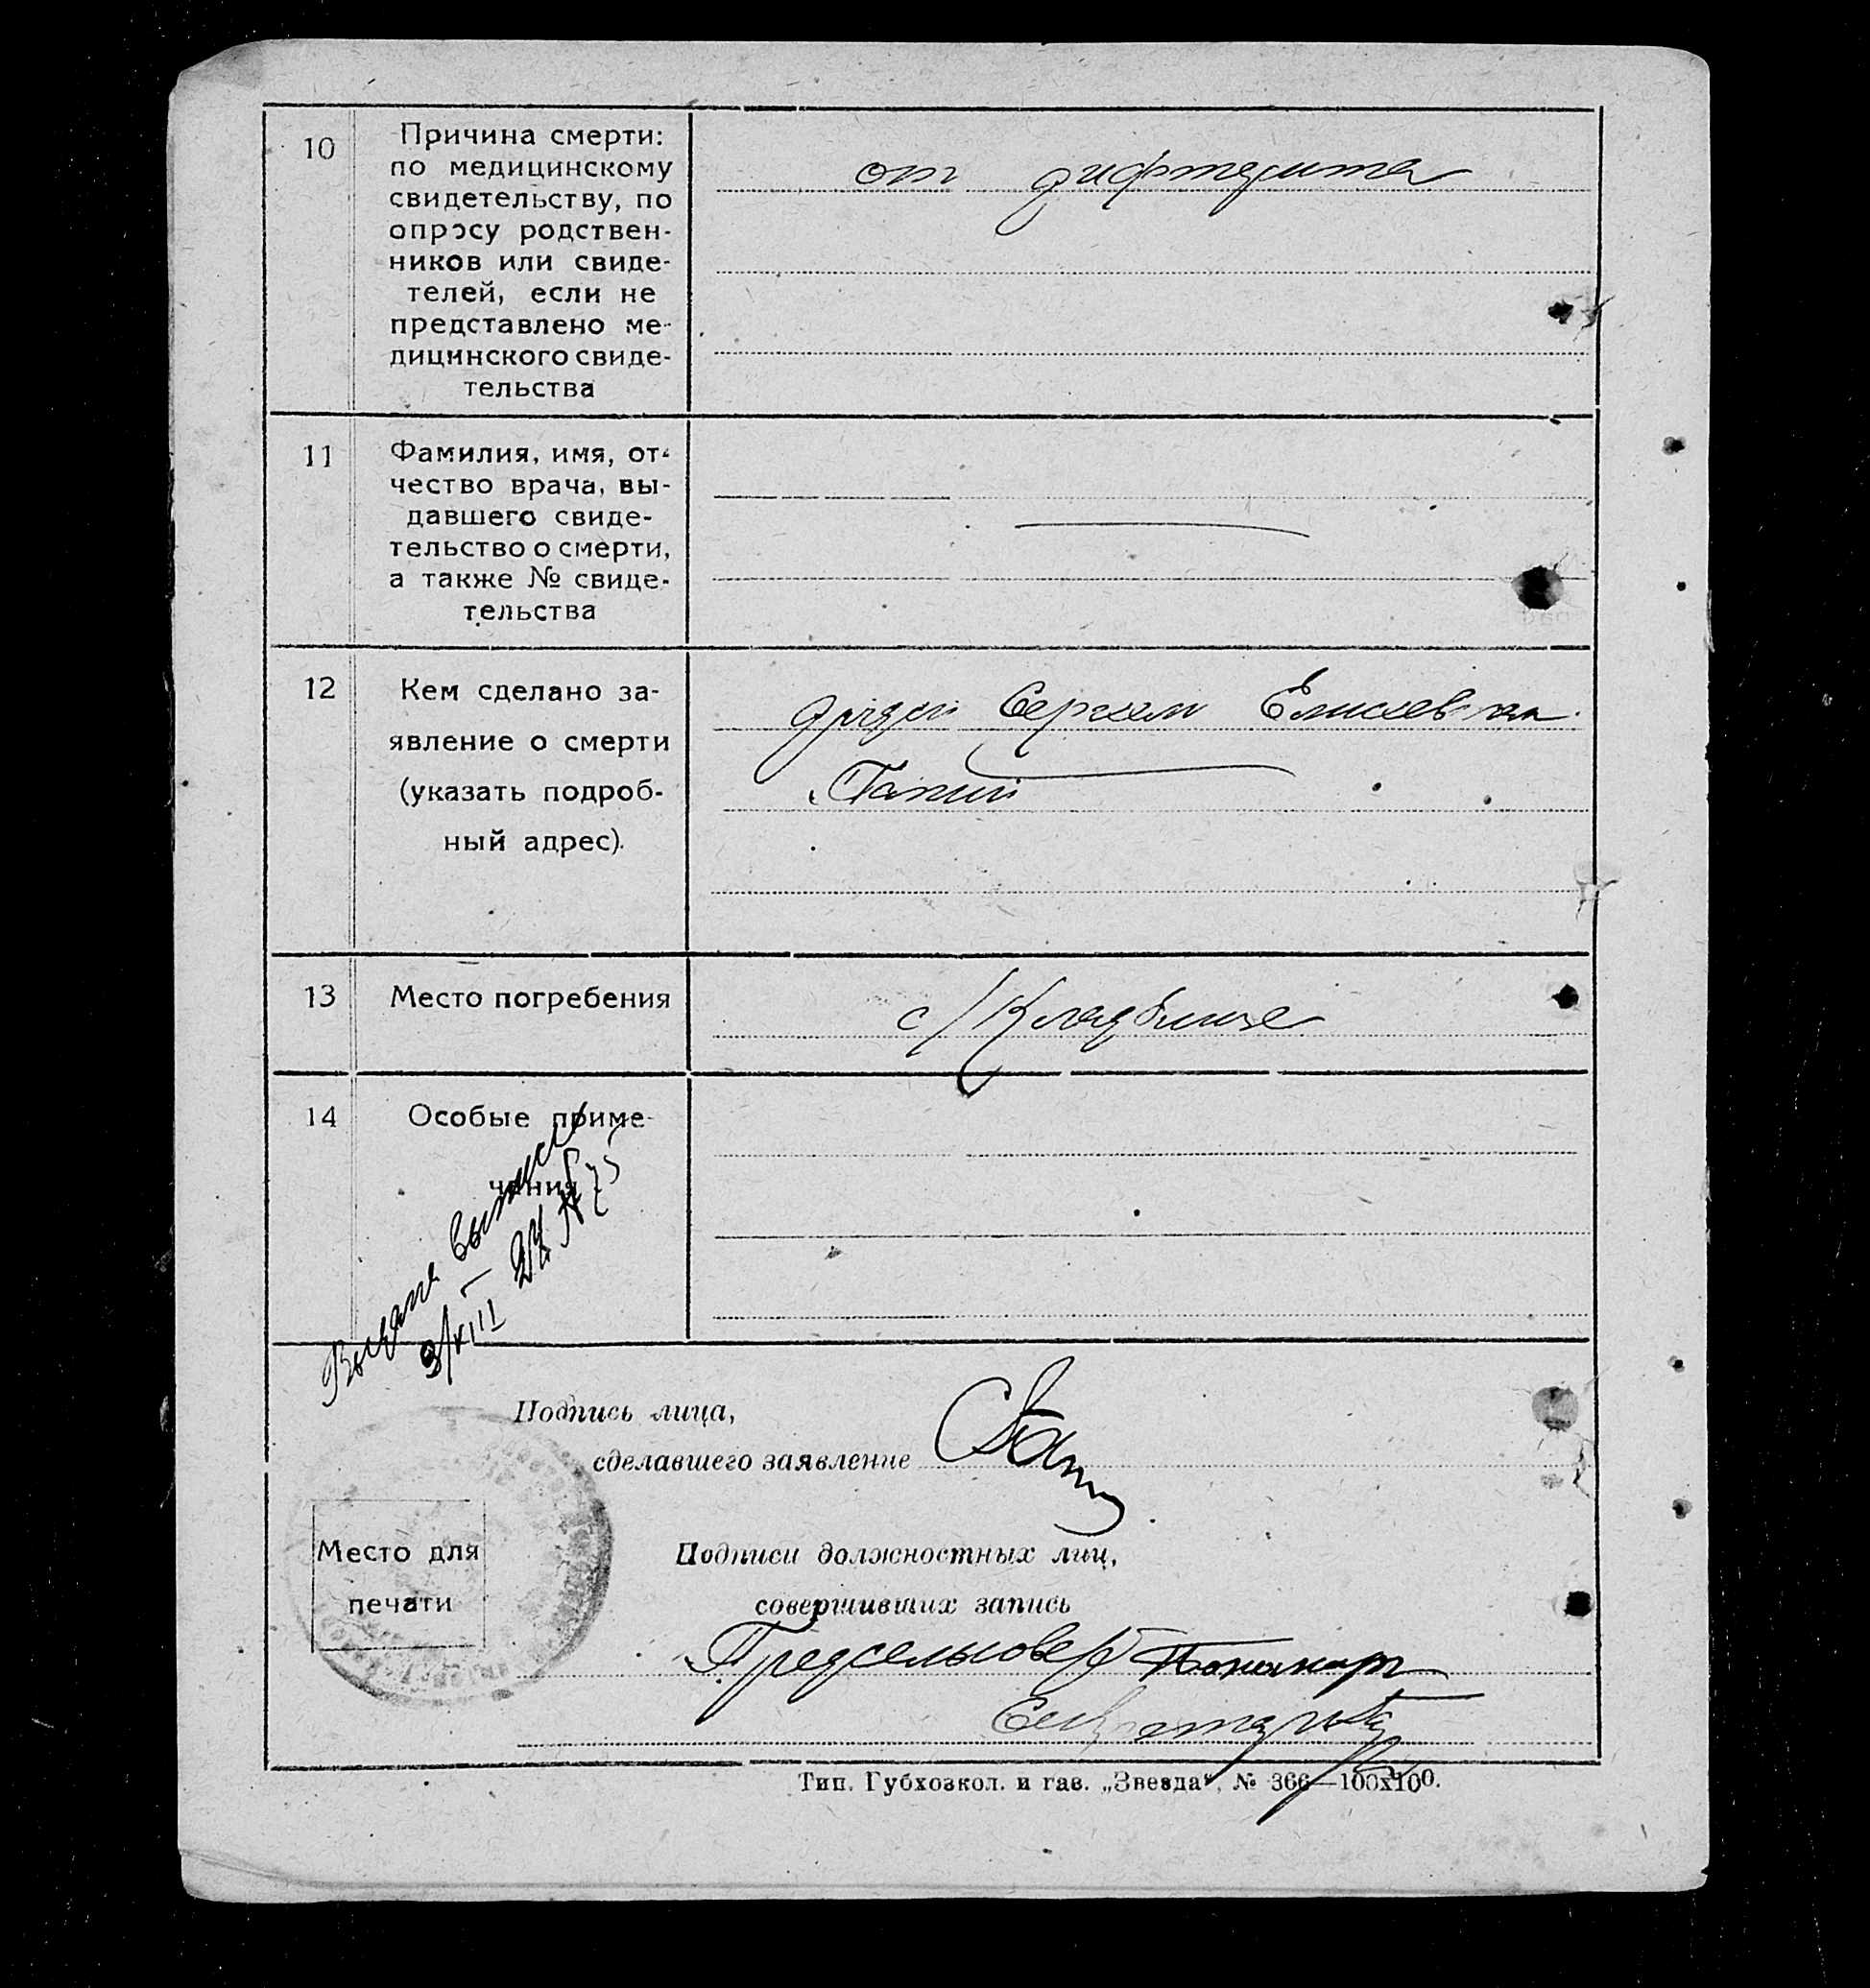 10
Причина смерти:
по медицинскому
свидетельству, по
опросу родствен-
ников или свиде-
телей, если не
представлено ме-
дицинского свиде-
тельства
от дифтерита
11
Фамилия, имя, от-
чество врача, вы-
давшего свиде-
тельство о смерти,
а также № свиде-
тельства
12
Кем сделано за-
явление о смерти
(указать подроб-
ный адрес).
дядей Сергеем Елисеевичем
13
Место погребения
с/Кладбище
14
Особые приме-
чания
Выдана выпись
3/VIII — 24 № 75
Подпись лица,
сделавшего заявление
Место для
печати
Подписи должностных лиц,
совершивших запись
Предсельсовета
Секретарь
Тип. Губхозкол. и газ. „Звезда“, № 366—100х100.